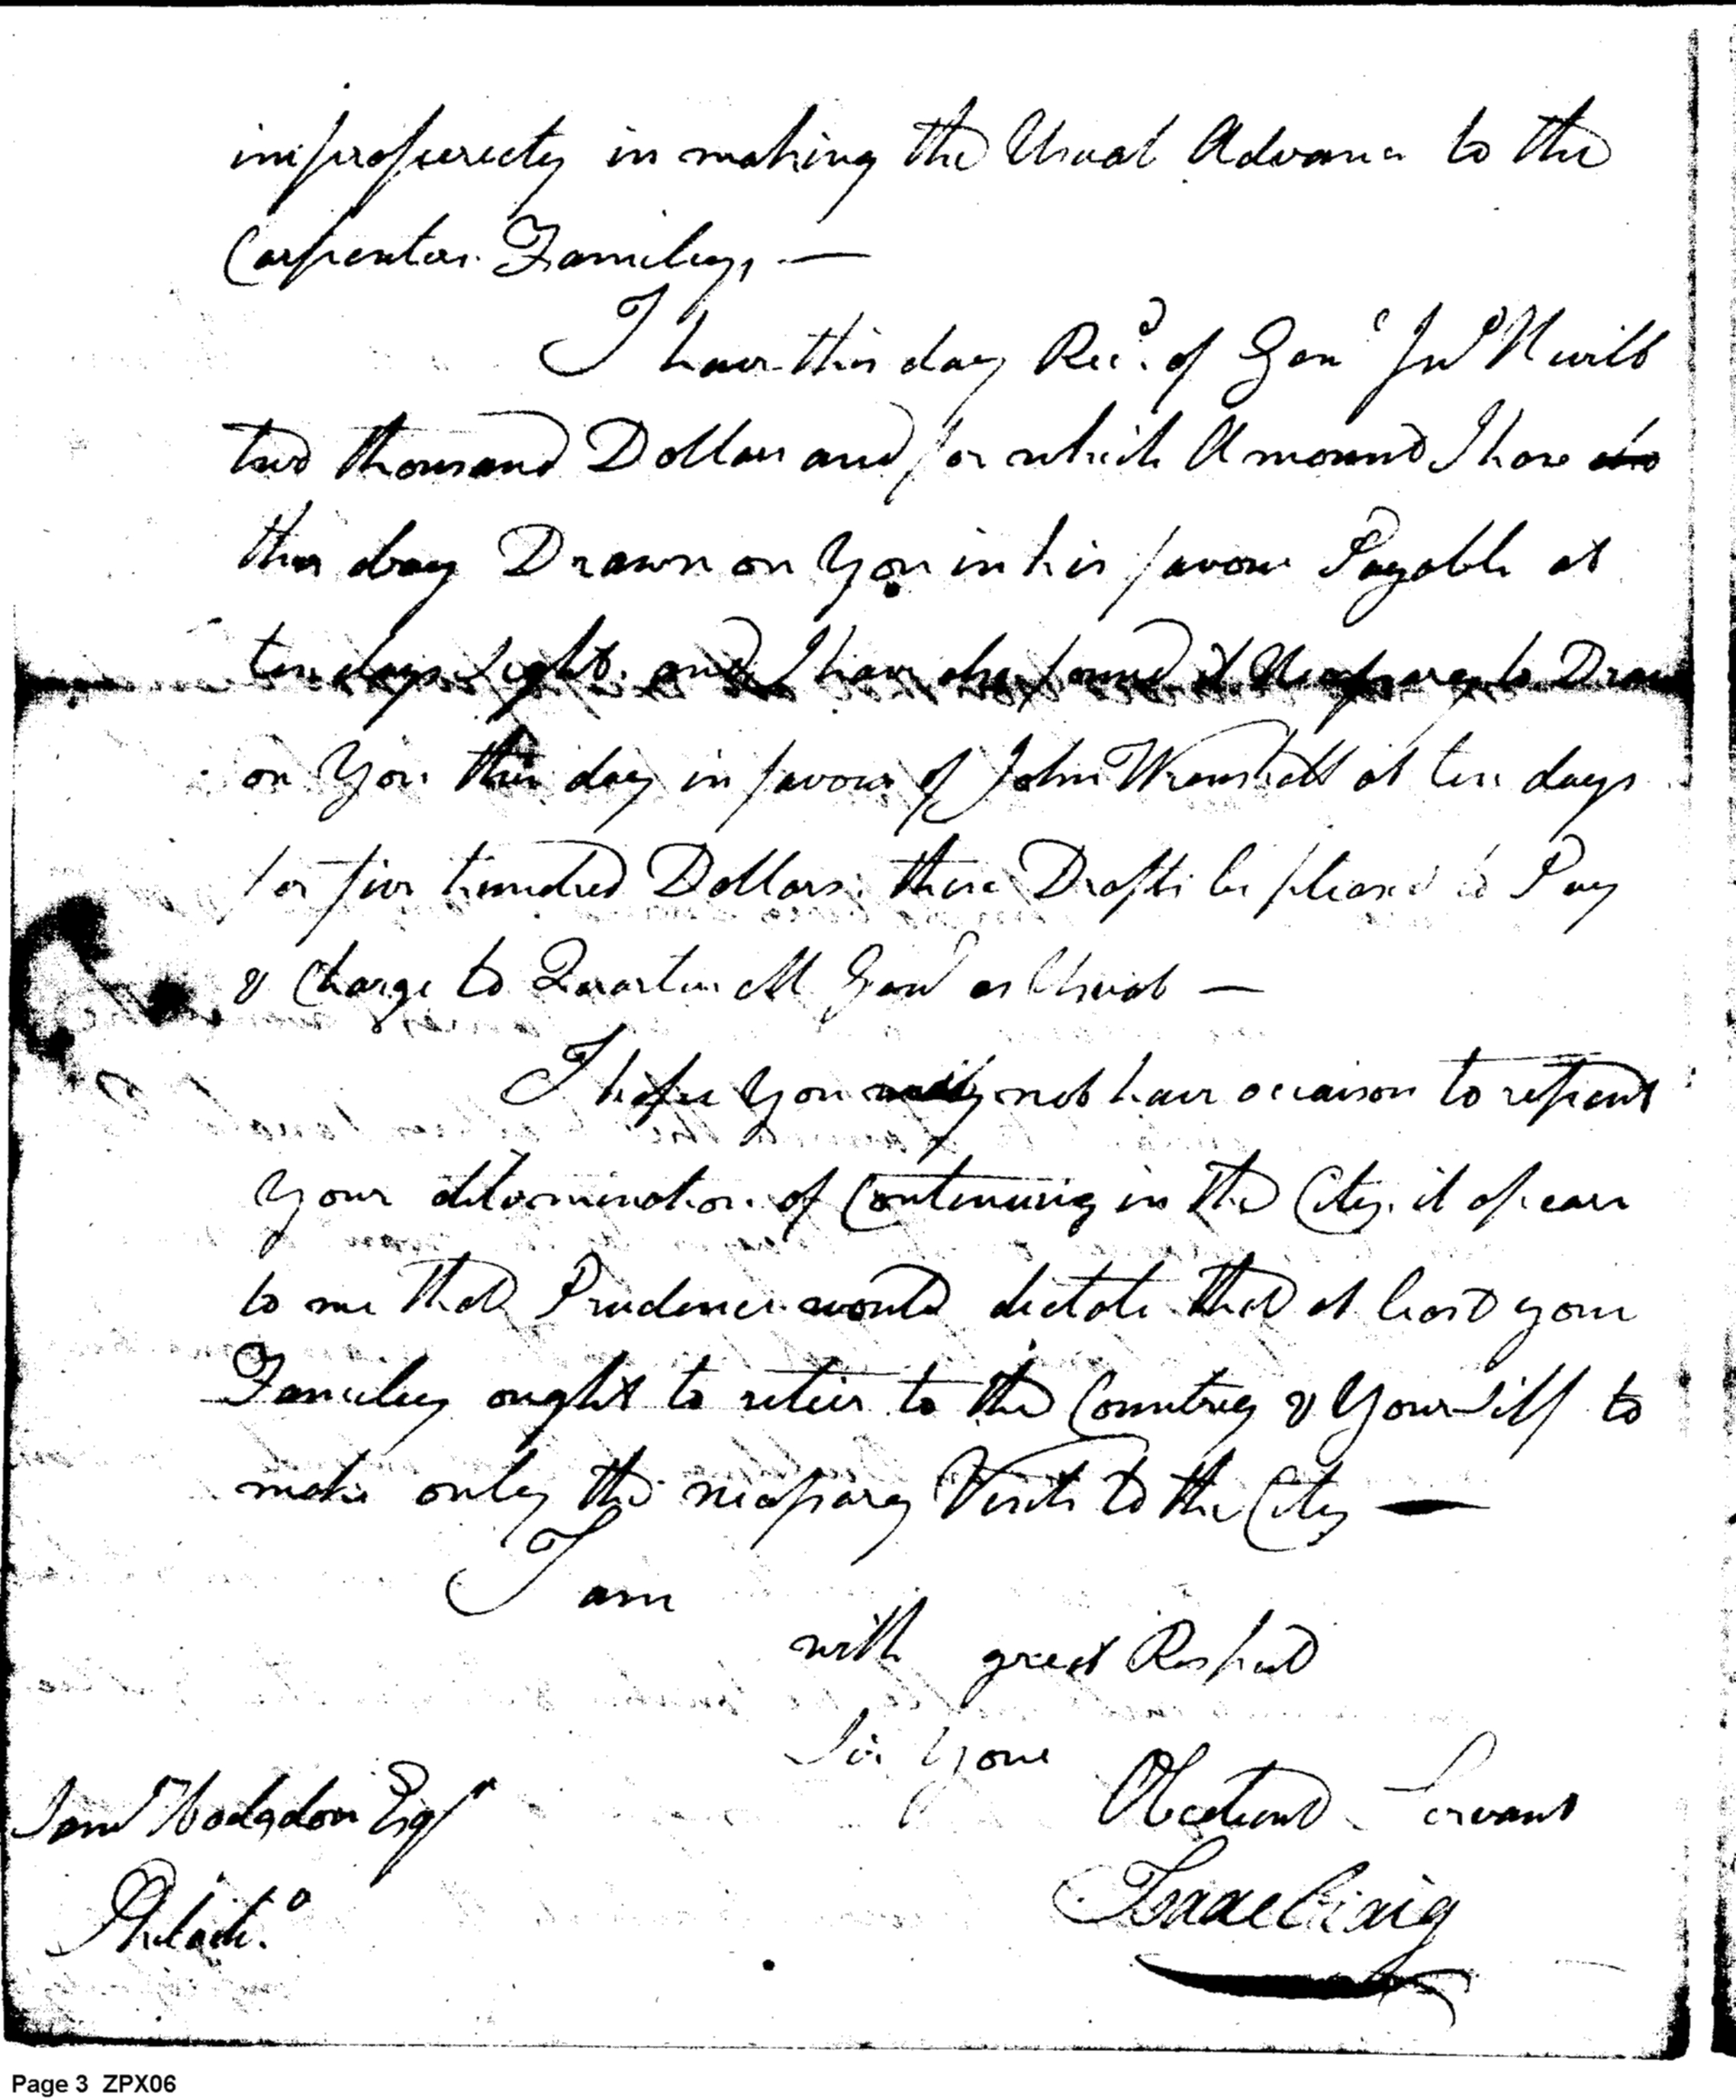 improperiety in making the Usual Advance to the
Carpenters Familys, —
I have this day Rec.d of Gen.l Jn.o Nevill
two thousand Dollars and for which Amount I have
this day Drawn on You in his favour Payable at
ten days Sight. and I have also found it Necessary to Draw
on You this day in favour of John Wrenshall at ten days
for five hundred Dollars. these Drafts be pleased to Pay
& Charge to Quarter M Genl as Usual —
I hope You may not have occaison to repent
Your determination of Continuing in the City. it apears
to me that Prudence would dictate that at least your
Familey ought to retier to the Country & YourSelf to
make only the necessary Visits to the City —
I am
with great Respect
Sir Your
Obedient Servant
Saml Hodgdon Esqr
Isaac Craig
Philada.
Page 3 ZPX06